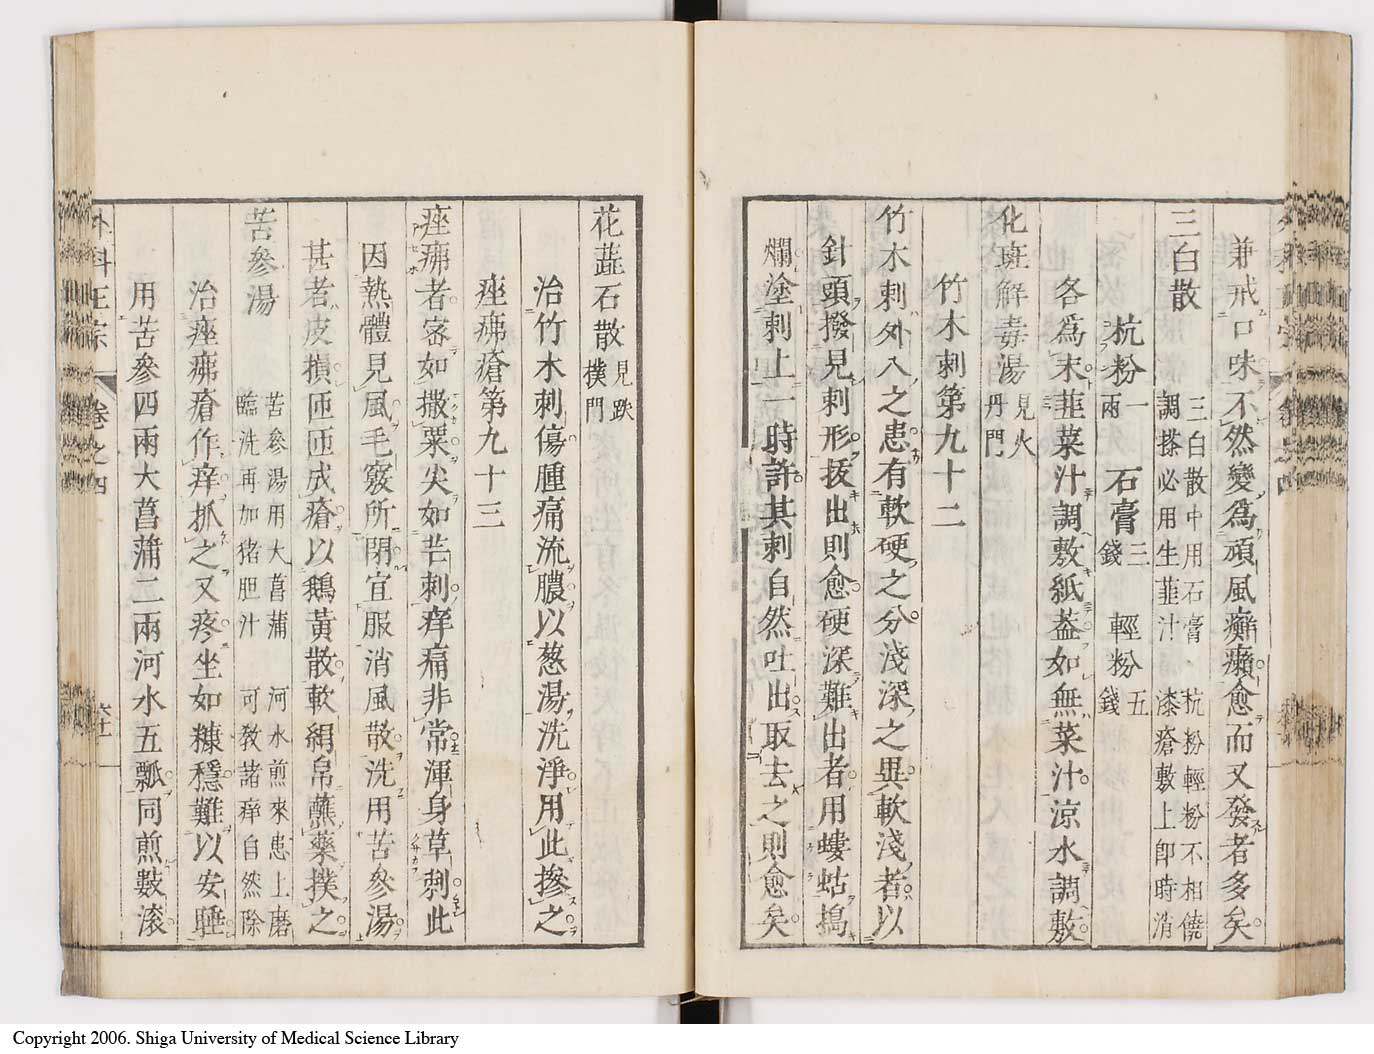 兼戒口味不然變爲頑風癬癩愈而又發者多矣
三白散
三白散中用石膏 杭粉輕粉不相饒
調搽必用生韮汁 漆瘡敷上即時消
杭粉一兩 石膏三錢 輕粉五錢
各爲末韮菜汁調敷紙葢如無菜汁涼水調敷
化斑解毒湯見火丹門
竹木刺第九十二
竹木刺外入之患有軟硬之分淺深之異軟淺者以
針頭撥見刺形拔出則愈硬深難出者用螻蛄搗
爛塗刺上一時許其刺自然吐出取去之則愈矣
花蕋石散見跌撲門
治竹木刺傷腫痛流膿以葱湯洗淨用此摻之
痤疿瘡第九十三
痤疿者宻如撒粟尖如芒刺痒痛非常渾身草刺此
因熱體見風毛竅所閉宜服消風散洗用苦參湯
甚者皮損匝匝成瘡以鵝黃散軟絹帛蘸藥撲之
苦參湯
苦參湯用大菖蒲 河水煎來患上磨
臨洗再加猪胆汁 可教諸痒自然除
治痤疿瘡作痒抓之又疼坐如糠穩難以安睡
用苦參四兩大菖蒲二兩河水五瓢同煎數滚
外科正宗 卷之四
Copyright 2006. Shiga University of Medical Science Library